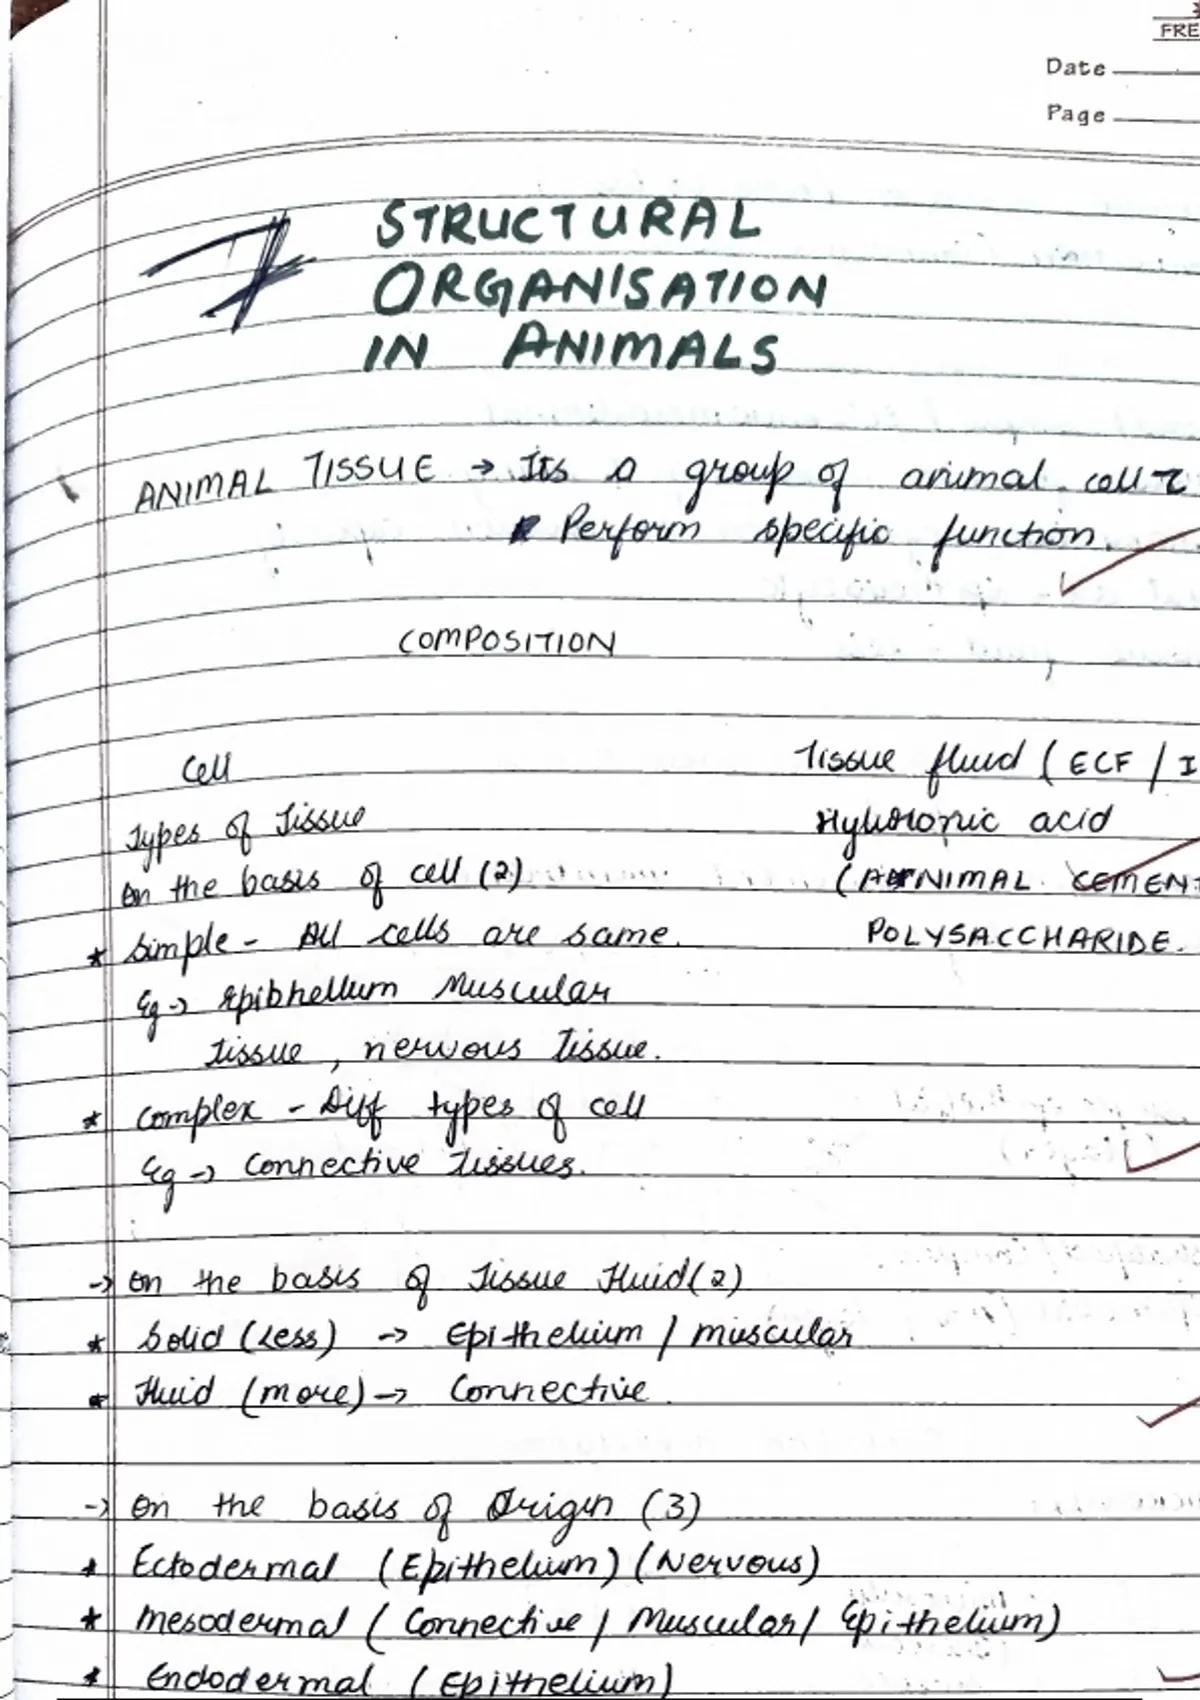 FRE
Date
Page
STRUCTURAL
ORGANISATION
IN ANIMALS
ANIMAL TISSUE → Its a group of animal cell
Perform specific function.
COMPOSITION
Cell
Tissue fluid (ECF / I
Types of Tissue
Hyluronic acid
On the basis of cell (2)
(ANIMAL CEMENT
* Simple - All cells are same.
POLYSACCHARIDE.
Eg → Epibhellum Muscular
Tissue, nervous Tissue.
* Complex - Diff types of cell
Eg → Connective Tissues.
→ On the basis of Tissue Fluid (2)
* Solid (Less) → Epithelium / muscular
* Fluid (more) → Connective.
→ On the basis of Origin (3)
* Ectodermal (Epithelium) (Nervous)
* Mesodermal (Connective / Muscular / Epithelium)
* Endodermal (Epithelium)